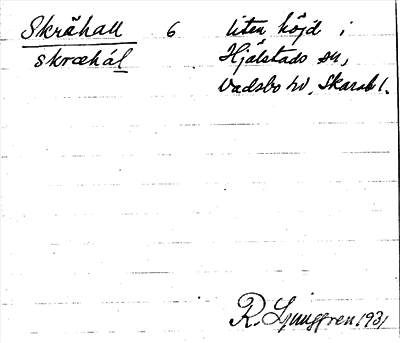 Skråhall 6 liten höjd i
skræhál Hjälstads sn,
Vadsbo hd, Skarab l.
R. Ljunggren 1931